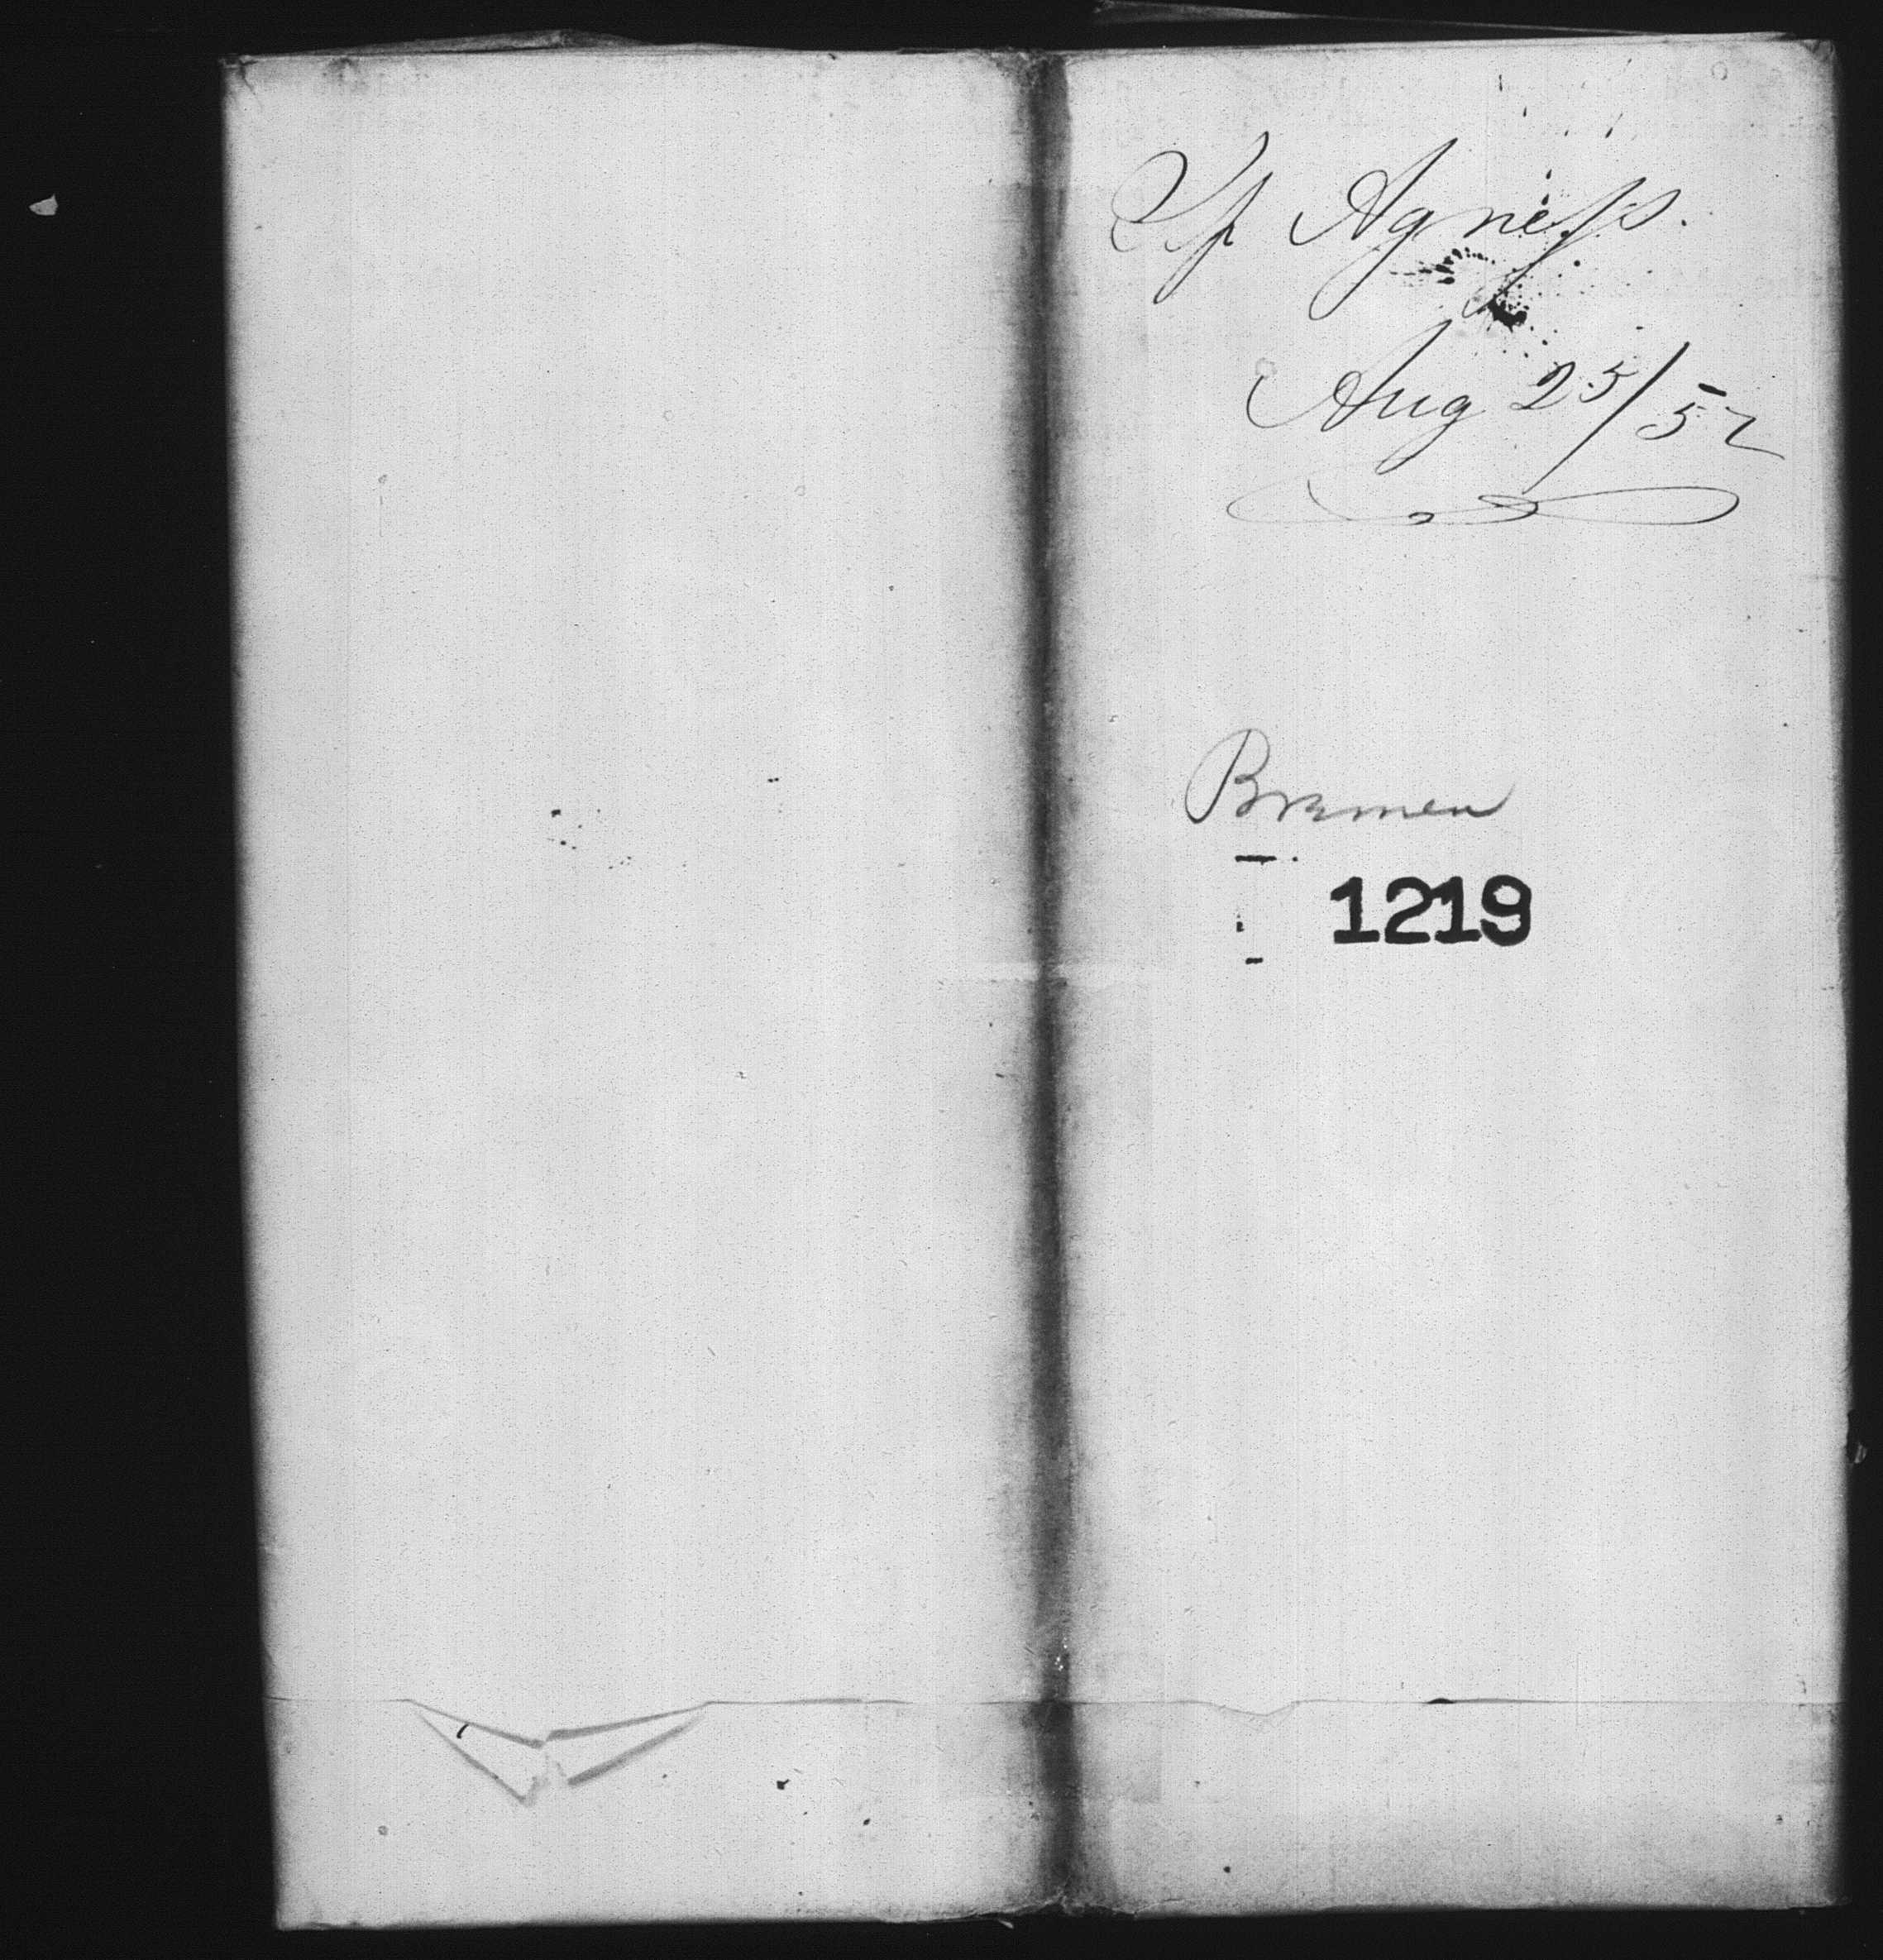 Sp Agness.
Aug 25/52
Bremen
1219